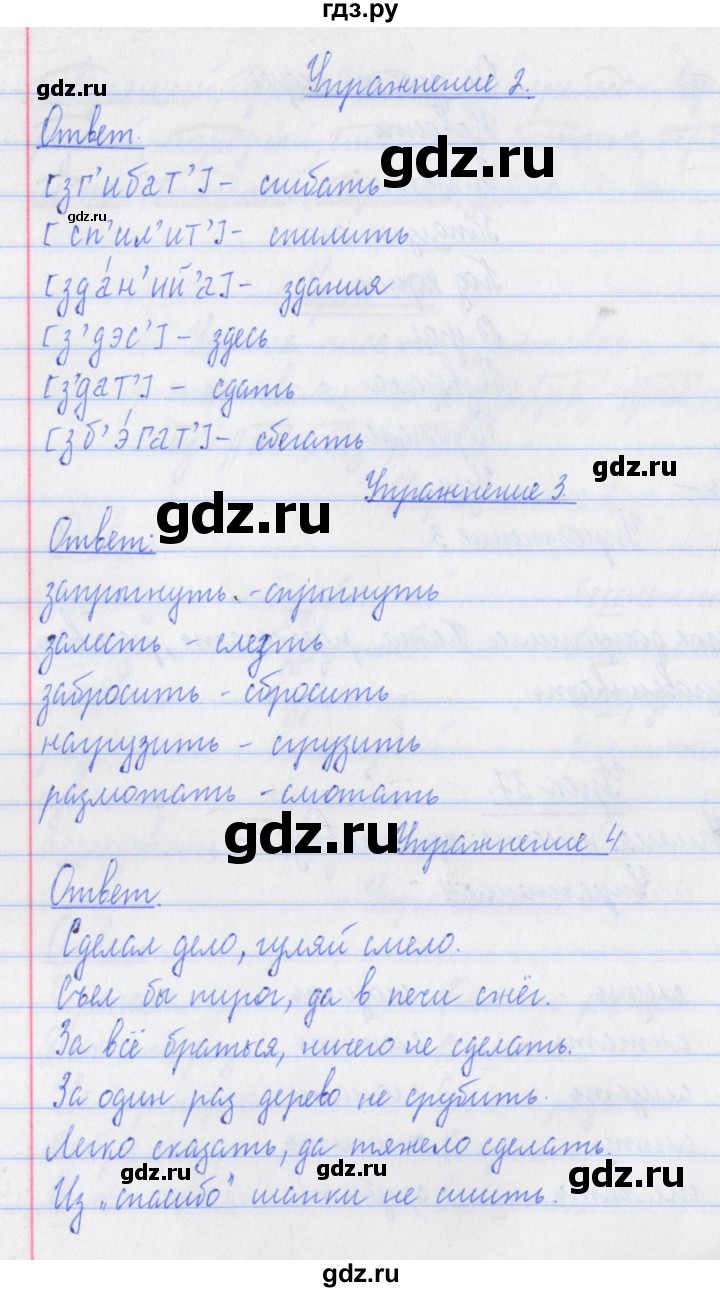 гдз.ру
Упражнение 2.
gdz.ru
Ответ.
gdz.ru
[зг'ибат'] - сгибать
gdz.ru
[сп'ил'ит'] - спилить
[зда́н'ий'а] - здания
[з'дэс'] - здесь
[з'дат'] - сдать
[зб'э́гат'] - сбегать
gdz.ru
Упражнение 3.
gdz.ru
Ответ:
запрыгнуть - спрыгнуть
залесть - слезть
забросить - сбросить
нагрузить - сгрузить
размотать - смотать
gdz.ru
Упражнение 4
Ответ.
Сделал дело, гуляй смело.
Съел бы пирог, да в печи снёг.
За всё браться, ничего не сделать.
За один раз дерево не срубить.
Легко сказать, да тяжело сделать.
gdz.ru
gdz.ru
gdz.ru
Из „спасибо" шапки не сшить.
gdz.ru